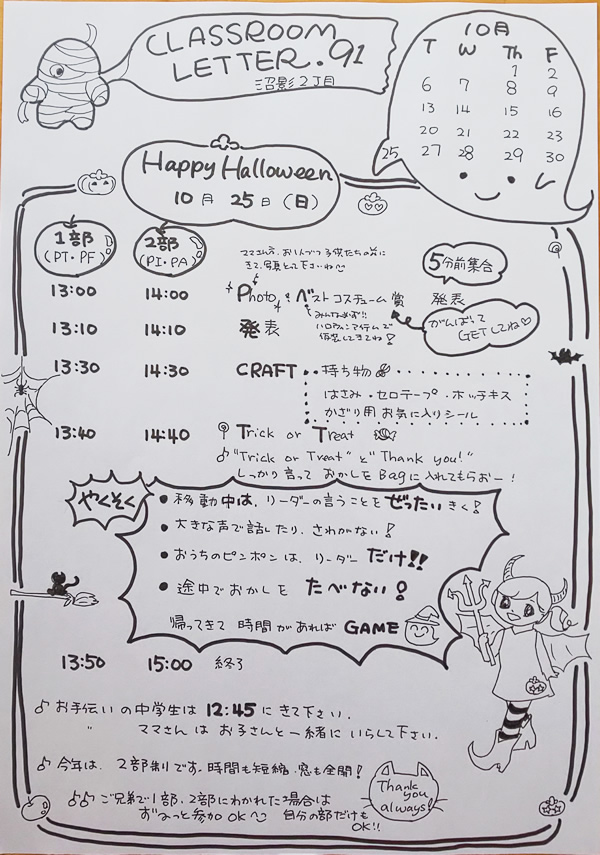 CLASSROOM
LETTER.91
沼影2丁目
10月
T W Th F
1 2
6 7 8 9
13 14 15 16
20 21 22 23
25 27 28 29 30
Happy Halloween
10月 25日(日)
1部
(PT・PF)
2部
(PI・PA)
ママさん方、お1人づつ子供たちの前に
きて、写真とって下さいね
5分前集合
13:00 14:00 Photo & ベストコスチューム賞 発表
みんなめざせ!!
ハロウィンアイテムで
仮装してきてね!
がんばって
GETしてね♡
13:10 14:10 発表
13:30 14:30 CRAFT 持ち物
はさみ・セロテープ・ホッチキス
かざり用 お気に入りシール
13:40 14:40 Trick or Treat
♪"Trick or Treat"と"Thank you!"
しっかり言って おかしをBagに入れてもらおー!
やくそく
● 移動中は、リーダーの言うことをぜったいきく!
● 大きな声で話したり、さわがない!
● おうちのピンポンは、リーダーだけ!!
● 途中でおかしを たべない!
帰ってきて 時間があれば GAME
13:50 15:00 終了
♪ お手伝いの中学生は 12:45 にきて下さい.
〃 ママさんは お子さんと一緒に いらして下さい.
♪ 今年は、2部制です。時間も短縮、窓も全開!
Thank
you
always!
♪♪ ご兄弟で1部、2部にわかれた場合は
ずーっと参加OK 自分の部だけも
OK!!